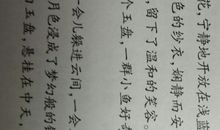 花,宁静地开放在浅蓝
色的纱衣,娴静而安
,留下了温和的笑容。
个玉盘,一群小鱼好
一会儿躲进云间,一会
月色浸成了梦幻般的银
玉盘,悬挂在中天,